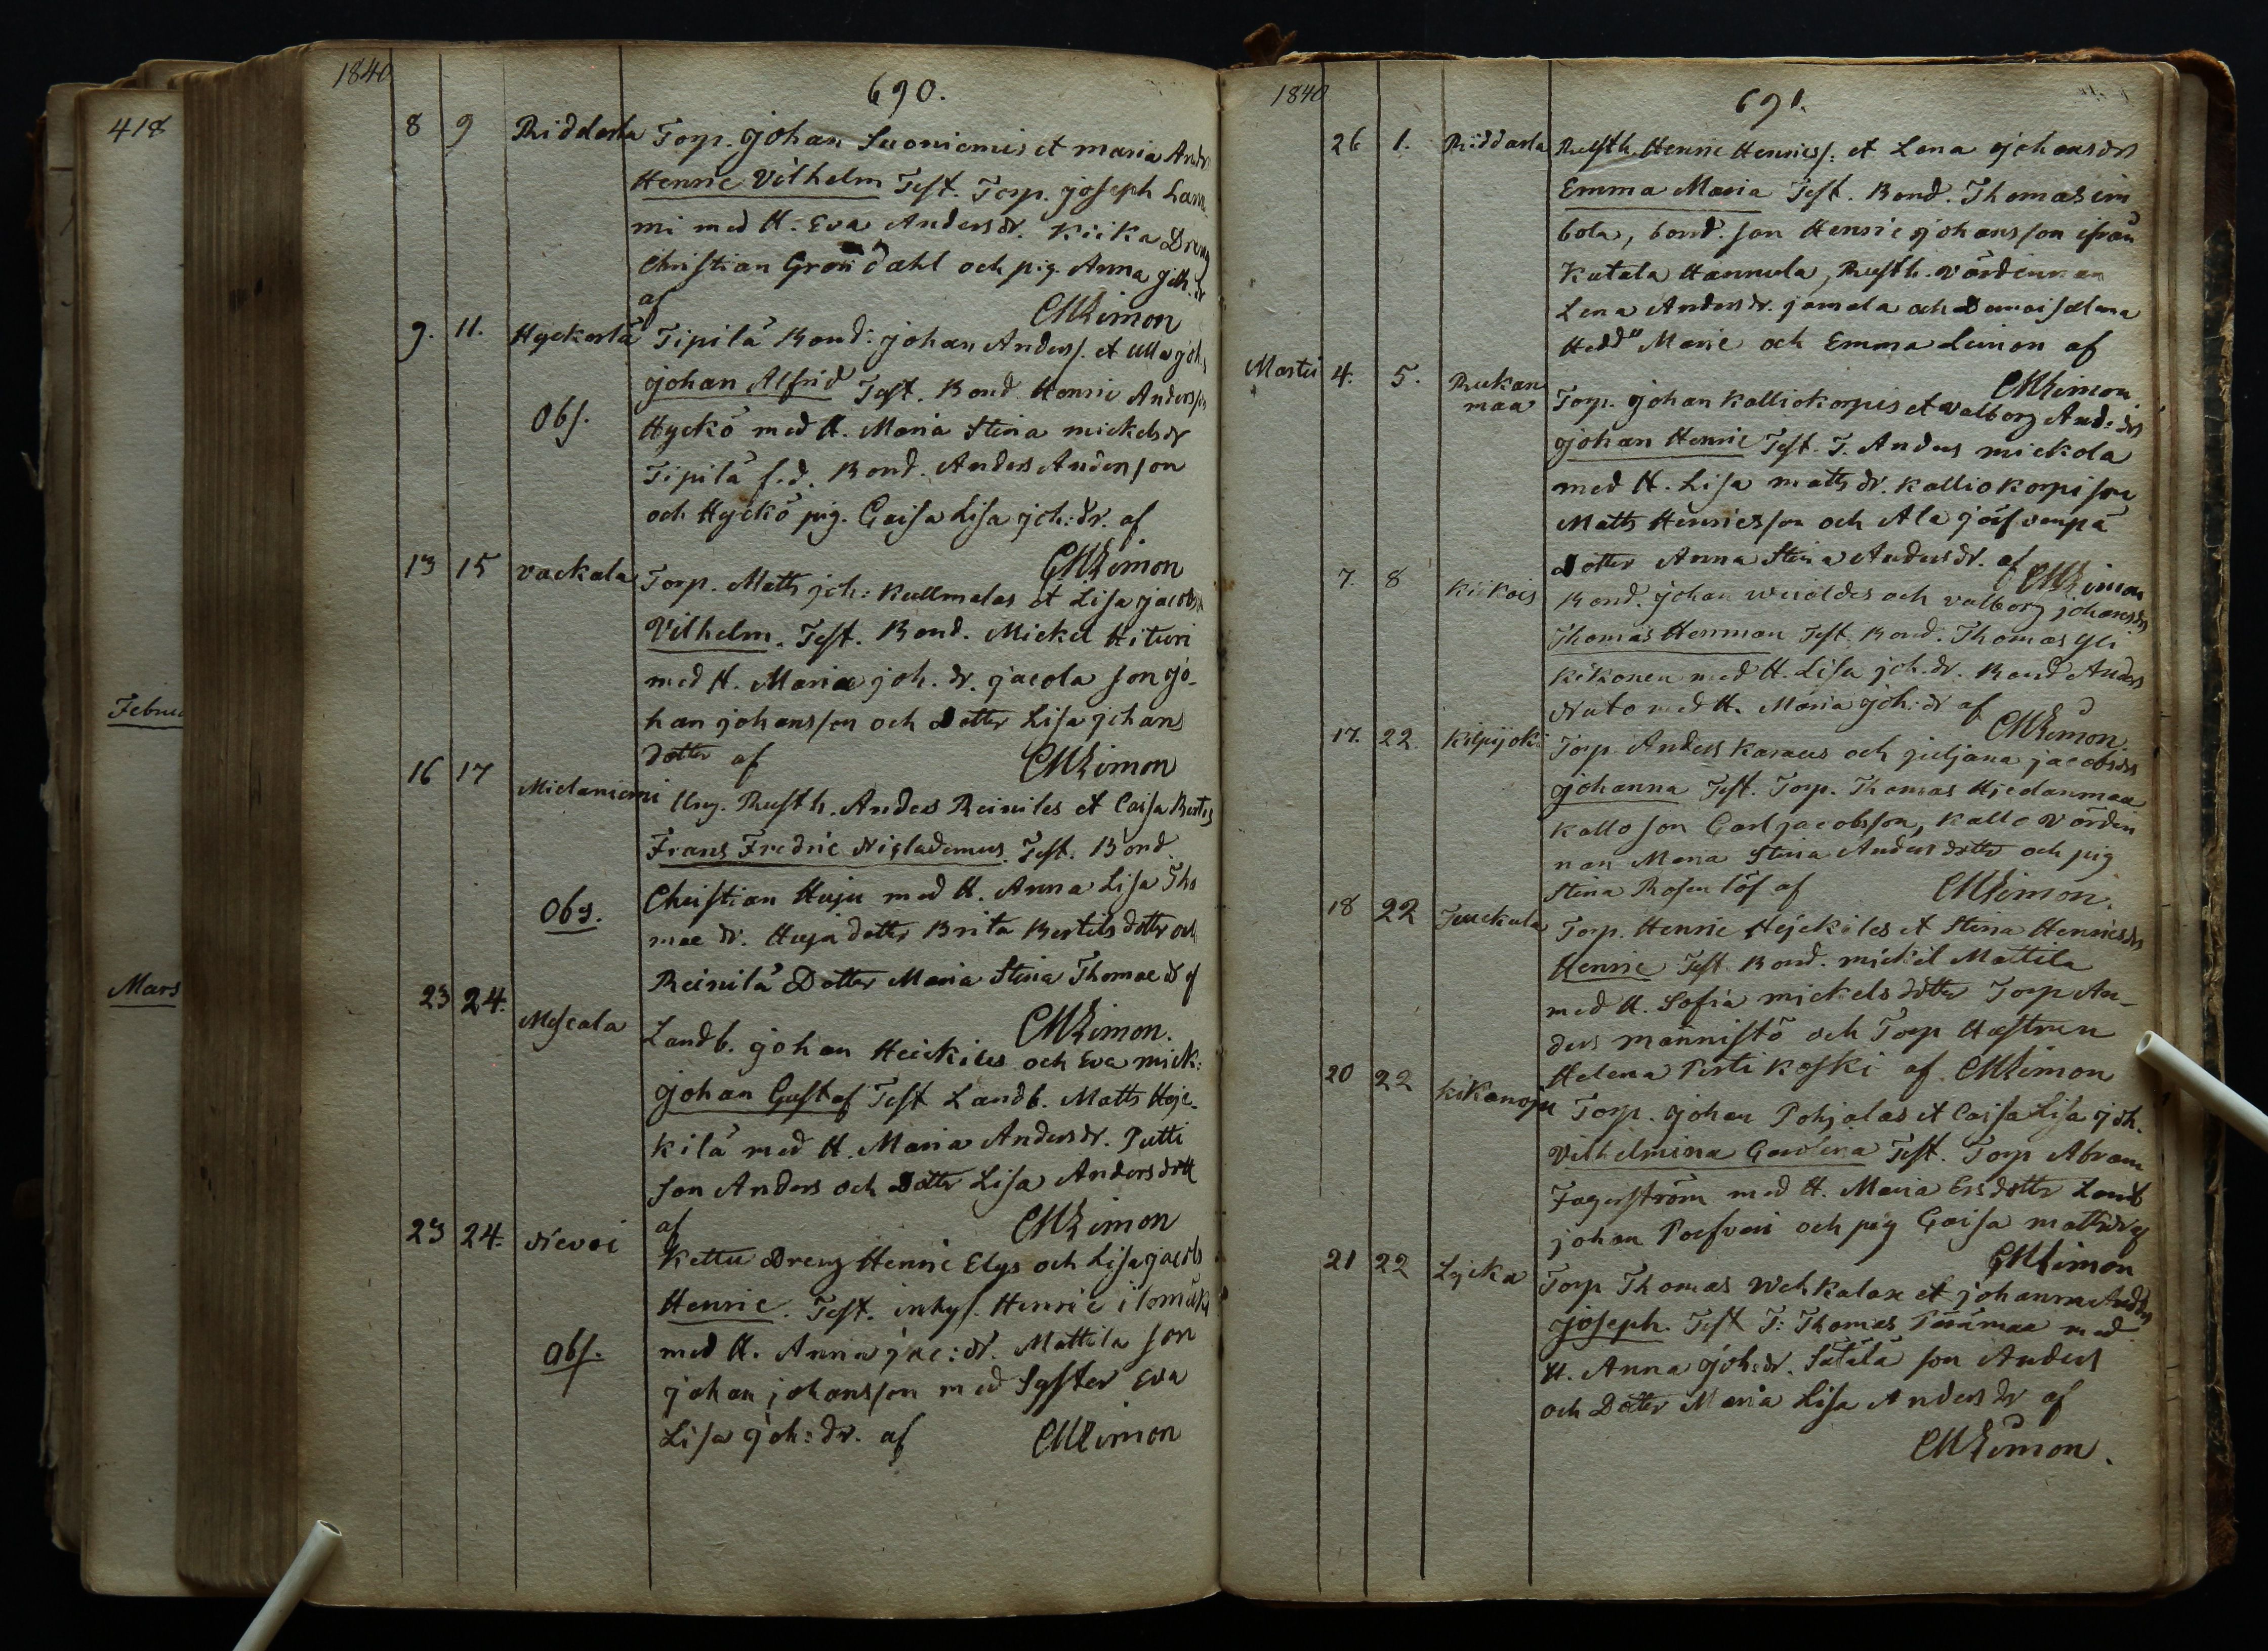 418
Febru
Mars
1840
690.
8 9 Riddarla Torp. Johan Suoniemis et Maria Andr
Henric Vilhelm Test. Torp. Joseph Lam
mi med H. Eva Andersdr. Kiika Dreng
Christian Grondahl och pig. Anna Joh. dr
af CMLimon
9. 11. Hyckerlä Tipilä Bond: Johan Anders s. et Ulla Johs
Johan Alfrid Test. Bond Henric Andersson
Obs. Hyckö med H. Maria Stina Mickelsdr
Tipilä f.d. Bond. Anders Andersson
och Hyckö pig. Caisa Lisa Joh: dr. af
CMLimon
13 15 Vackala Torp. Matts Joh: Kullmalas et Lisa Jacobsdr
Vilhelm. Test. Bond. Mickel Hituri
med H. Maria Joh. dr. Jacola son Jo-
han Johansson och Dotter Lisa Johans
dotter af CMLimon
16 17 Mielaniemi Ung. Rusth. Anders Reiniles et Caisa Bertes
Frans Fredric Nicladomus. Test. Bond.
Obs. Christian Huju med H. Anna Lisa Tho
mae dr. Huja dotter Brita Bertils dotter och
Reinilä Dotter Maria Stina Thomae dr af
CMLimon.
23 24. Mescala Landb. Johan Heickiles och Eva Mick:
Johan Gustaf Test Landb. Matts Hyc-
kilä med H. Maria Andersdr. Putti
Son Anders och Dotter Lisa Anders dott
af CMLimon
23 24. Nievoi Kettu Dreng Henric Elys och Lisa Jacobs
Henric. Test. inhys. Henric
Obs. med H. Anna Jac: dr. Mattila Son
Johan Johansson med Syster Eva
Lisa Joh: dr. af CMLimon
1840
691.
26 1. Riddarla Rusth. Henric Henrics s: et Lena Johansdr
Emma Maria Test. Bond. Thomas im
bola, bond. son Henric Johansson ifrån
Kutala Hannula, Rusth. Värdinnan
Lena Andersdr. Jamala och Demoiselerna
Hedd Marie och Emma Limon af
CMLimon
Martii 4. 5. Ruokan
maa Torp. Johan Kalliokorpis et Valborg And: dr
Johan Henric Test. T. Anders Mickola
med H. Lisa Matts dr. Kalliokorpi son
Matts Henricsson och Ala Jöfvenpä
Dotter Anna Stina Andersdr. af CMLimon
7. 8 Kiikois Bond. Johan och Valborg Johansdr
Thomas Herrman Test. Bond. Thomas Yli
Kikonen med H. Lisa Joh. dr. Bond Anders
Nuto med H. Maria Joh: dr af
CMLimon.
17. 22. Kilpijoki Torp Anders Karaus och Juljana Jacobsdr
Johanna Test. Torp. Thomas Hjedanmaa
Kallo son Carl Jacobsson, Kallo Värdin
nan Maria Stina Anders dotter och pig
Stina Rosenlöf af CMLimon.
18 22 Jeuckula Torp. Henric Hejckiles et Stina Henricsdr
Henric Test. Bond. Mickel Mattila
med H. Sofia Mickels dotter Torp An-
ders Männistö och Torp Hustrun
Helena Pertikoski af CMLimon
20 22 Kikanoja Torp. Johan Pohjalas et Caisa Lisa Joh.
Vilhelmina Carolina Test. Torp Abram
Fagerström med H. Maria Ersdotter Landb
Johan Poefveri och pig Caisa Mattsdr af
CMLimon
21 22 Lycka Torp Thomas Wehkalax et Johanna Anddr
Joseph. Test T: Thomas Päämaa med
H. Anna Joh: dr. Sutela son Anders
och Dotter Maria Lisa Anders dr af
CMLimon.